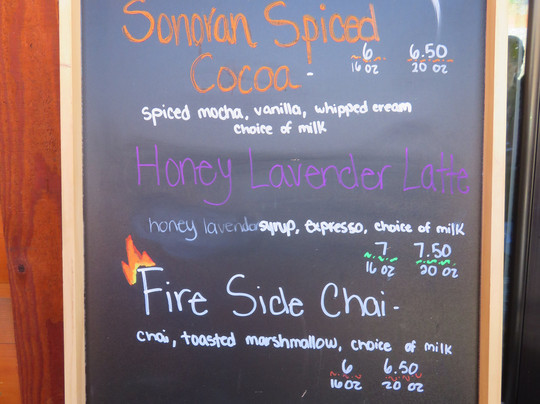 Sonoran Spiced
Cocoa -
6 6.50
16 oz 20 oz
spiced mocha, vanilla, whipped cream
choice of milk
Honey Lavender Latte
honey lavender syrup, expresso, choice of milk
7 7.50
16 oz 20 oz
Fire Side Chai -
chai, toasted marshmallow, choice of milk
6 6.50
16 oz 20 oz